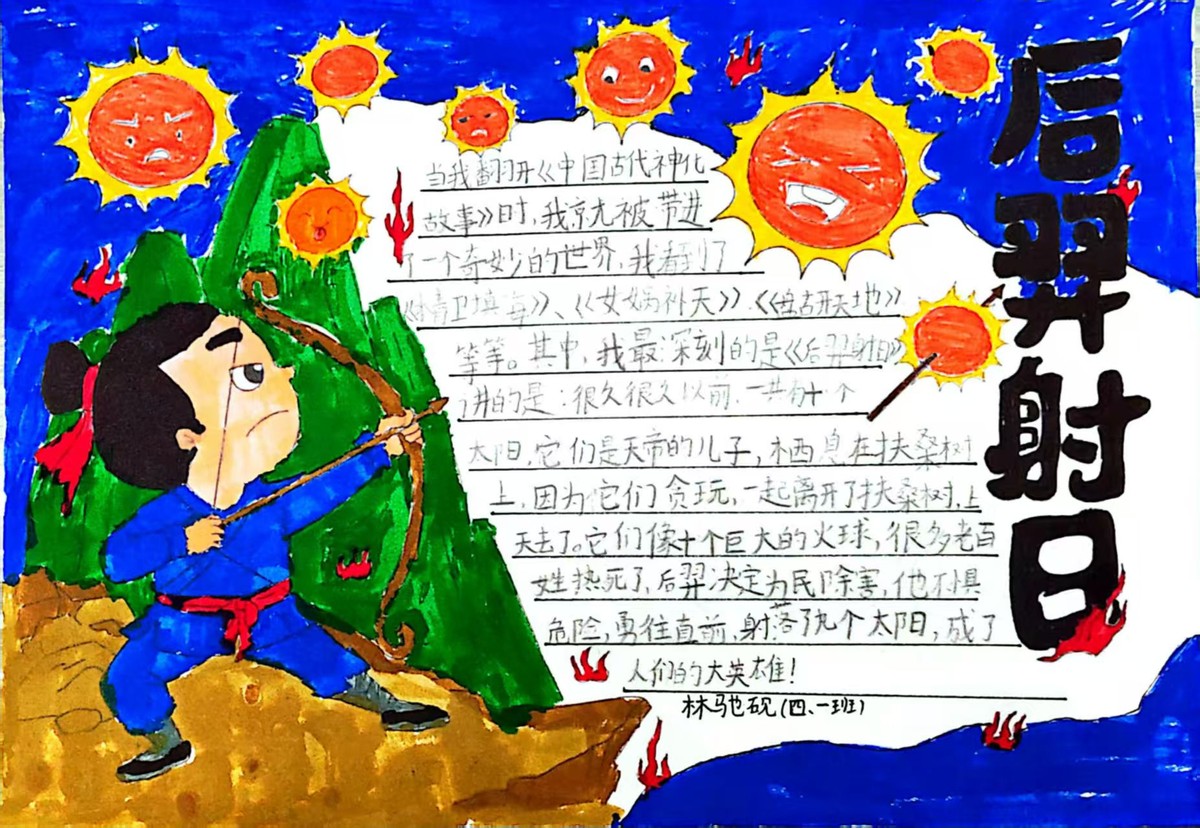 后羿射日
当我翻开《中国古代神化
故事》时,我就被带进
了一个奇妙的世界,我看到了
《精卫填海》、《女娲补天》.《盘古开天地》
等等。其中,我最深刻的是《后羿射日》
讲的是:很久很久以前,一共有十个
太阳,它们是天帝的儿子,栖息在扶桑树
上,因为它们贪玩,一起离开了扶桑树,上
天去了。它们像十个巨大的火球,很多老百
姓热死了,后羿决定为民除害,他不惧
危险,勇往直前,射落了九个太阳,成了
人们的大英雄!
林驰砚(四、一班)